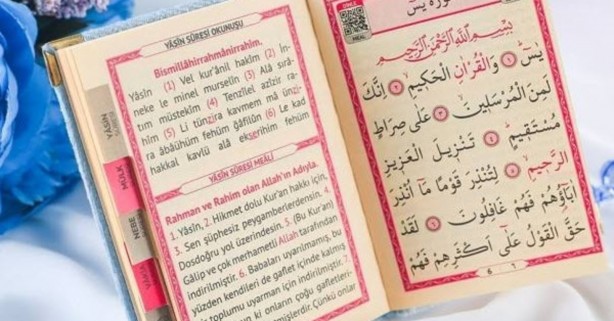 YÂSÎN SÛRESİ OKUNUŞU
Bismillâhirrahmânirrahîm.
Yâsîn (1) Vel kur'ânil hakîm (2) İn-
neke le minel murselîn (3) Alâ sırâ-
tım müstekîm (4) Tenzîlel azîzir ra-
hîm (5) Li tünzira kavmem mâ ünzi-
ra âbâühüm fehüm ğâfilûn (6) Le kad
hakkal kavlü alâ ekserihim fehüm
YÂSÎN SÛRESİ MEÂLİ
Rahman ve Rahim olan Allah'ın Adıyla.
1. Yâsîn, 2. Hikmet dolu Kur'an hakkı için,
3. Sen şüphesiz peygamberlerdensin. 4.
Dosdoğru yol üzerindesin. 5. (Bu Kur'an)
Gâlip ve çok merhametli Allah tarafından
indirilmiştir. 6. Babaları uyarılmamış, bu
yüzden kendileri de gaflet içinde kalmış
bir toplumu uyarman için indirilmiştir. 7.
ki onların çoğu gafletleri-
Çünkü onlar
YÂSÎN
MÜLK
NEBE
DİNLE
MEAL
سورة يس
بِسْمِ اللّٰهِ الرَّحْمٰنِ الرَّحِيمِ
يٰسٓ ﴿١﴾ وَالْقُرْاٰنِ الْحَكِيمِ ﴿٢﴾ اِنَّكَ
لَمِنَ الْمُرْسَلِينَ ﴿٣﴾ عَلٰى صِرَاطٍ
مُسْتَقِيمٍ ﴿٤﴾ تَنْزِيلَ الْعَزِيزِ
الرَّحِيمِ ﴿٥﴾ لِتُنْذِرَ قَوْمًا مَٓا اُنْذِرَ
اٰبَٓاؤُهُمْ فَهُمْ غَافِلُونَ ﴿٦﴾ لَقَدْ
حَقَّ الْقَوْلُ عَلٰٓى اَكْثَرِهِمْ فَهُمْ
6 ٦